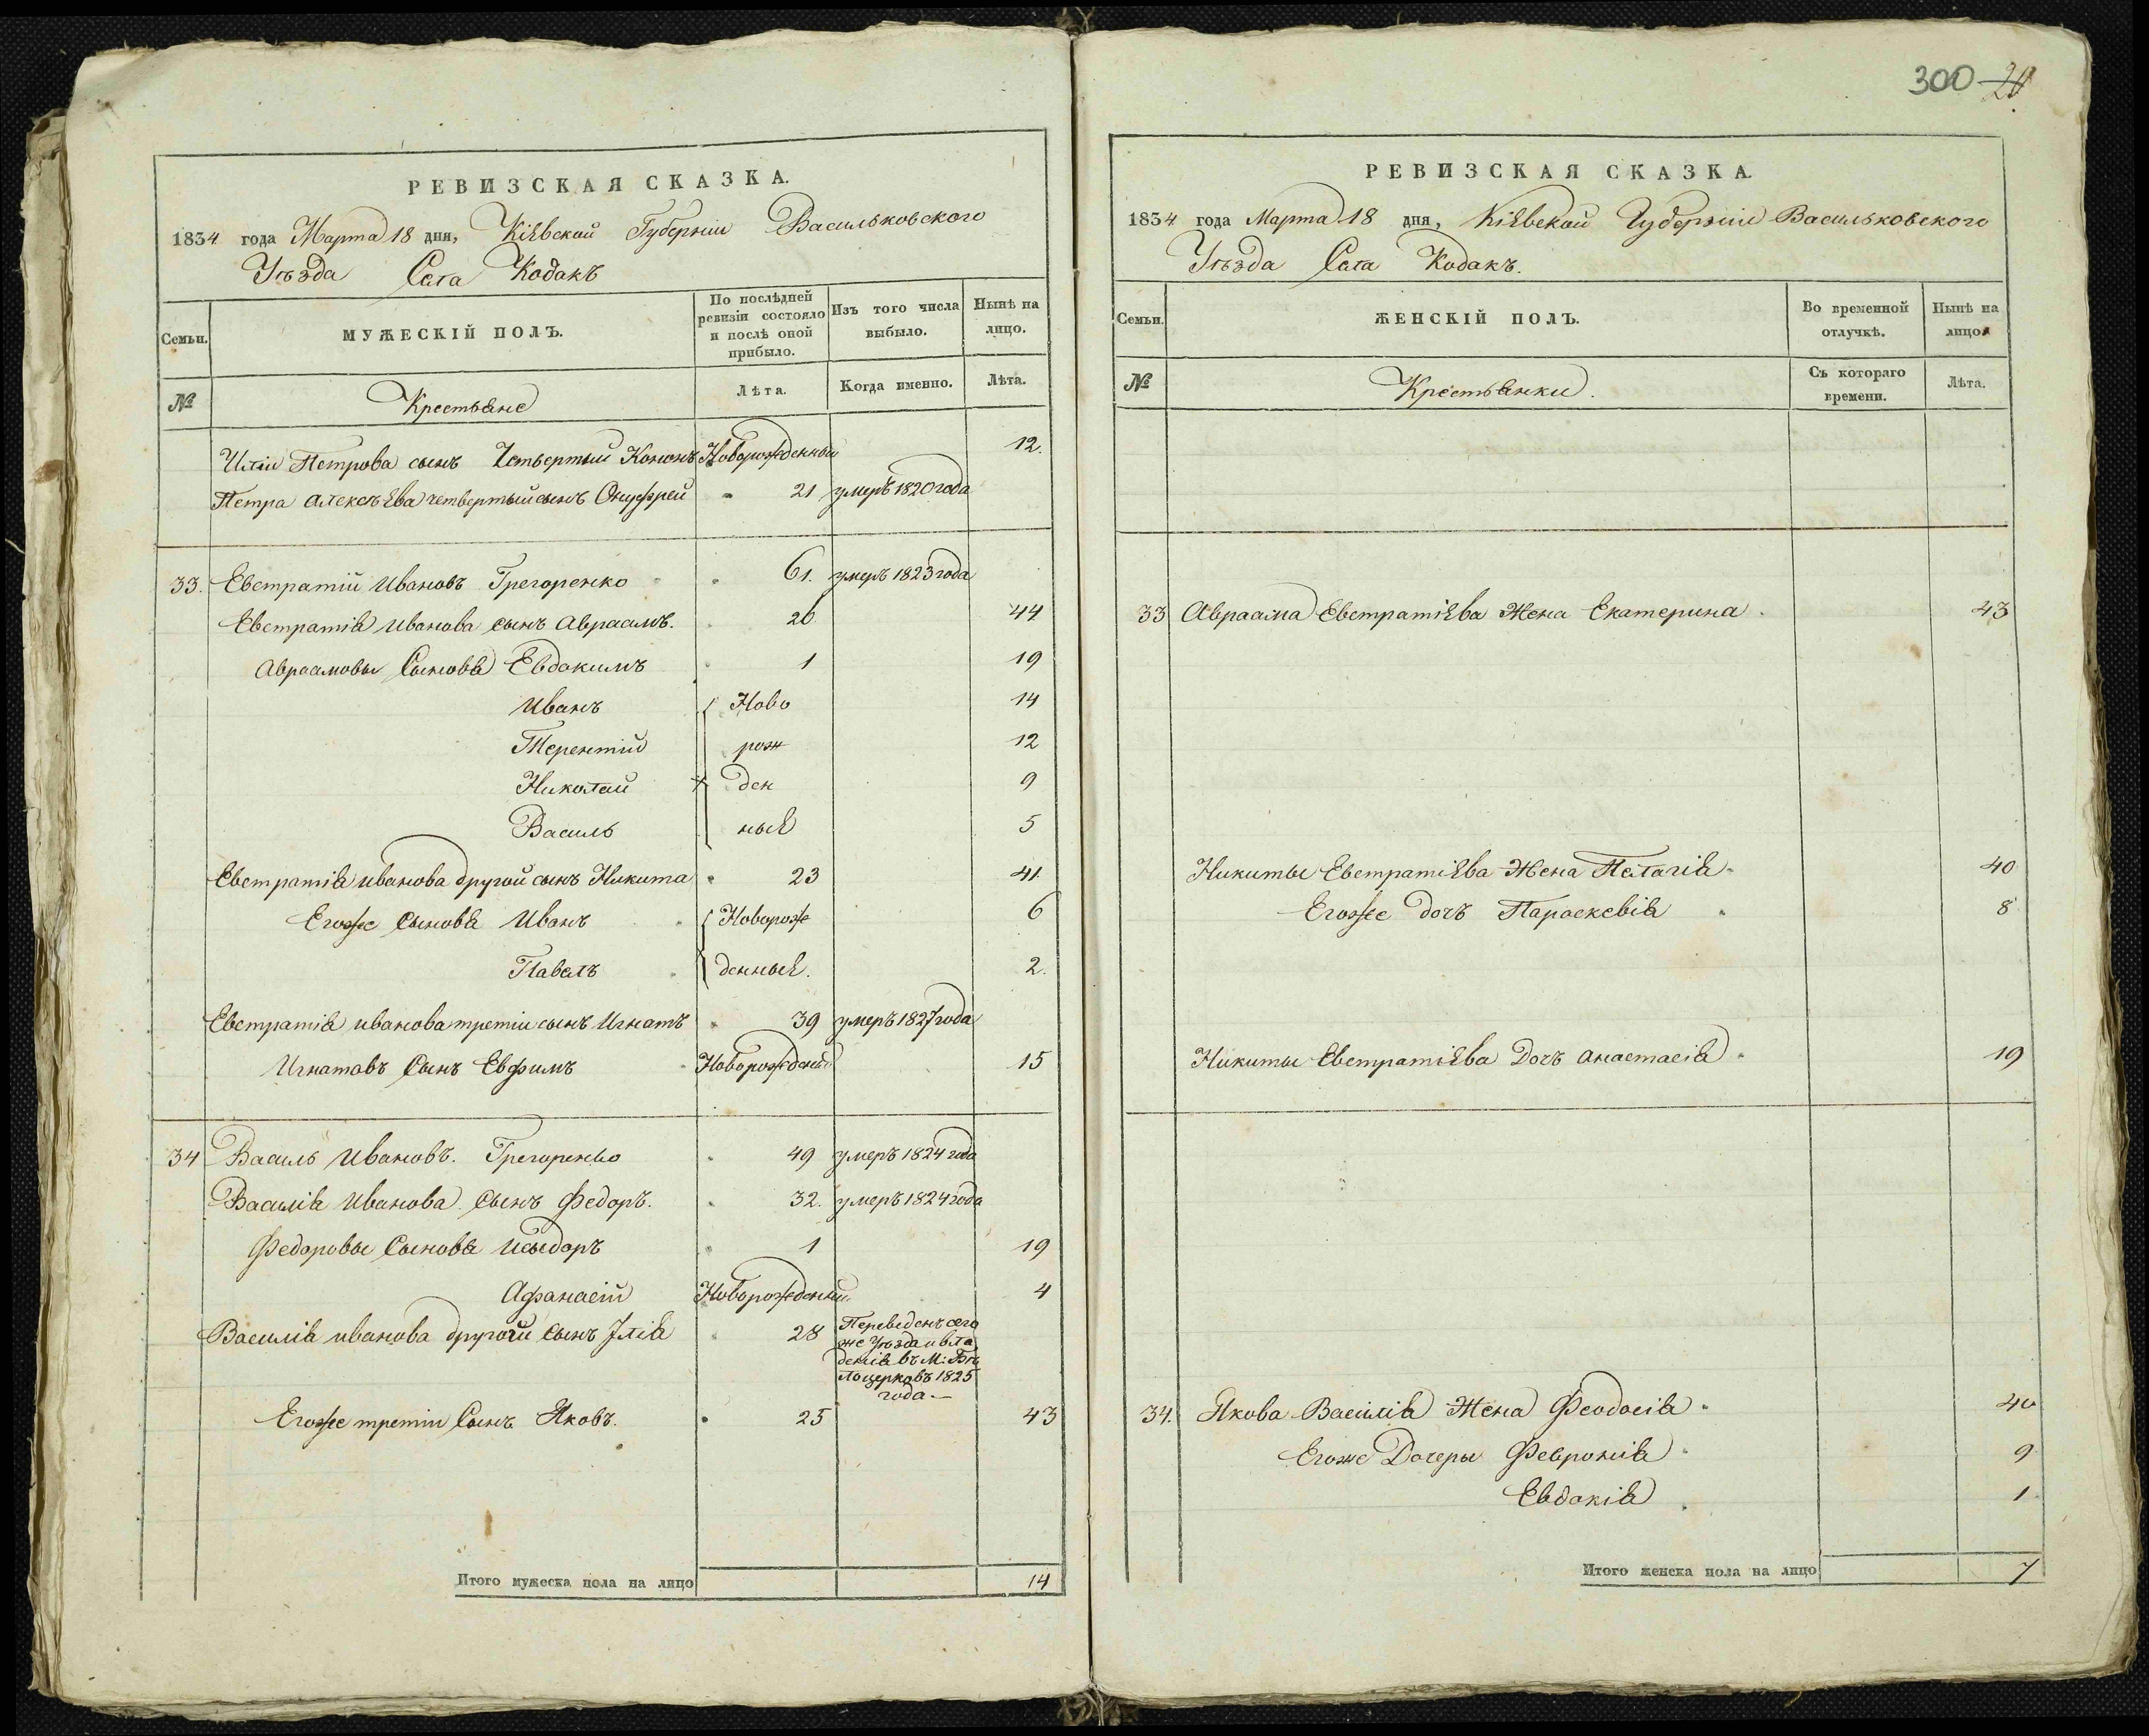 300 20
РЕВИЗСКАЯ СКАЗКА.
1834 года Марта 18 дня, Кіевской Губерніи Васильковского
Уѣзда Села Кодакъ
Семьи. МУЖЕСКІЙ ПОЛЪ. По послѣдней ревизіи состояло и послѣ оной прибыло. Изъ того числа выбыло. Нынѣ на лицо.
№ Крестьяне Лѣта. Когда именно. Лѣта.
Иліи Петрова сынъ Четвертый Кононъ Новорожденный 12.
Петра Алексѣева четвертый сынъ Онуфрей 21 умеръ 1820 года
33. Евстратій Ивановъ Грегоренко 61. умеръ 1823 года
Евстратія Иванова сынъ Авраамъ. 26 44
Авраамовы Сыновя Евдокимъ 1 19
Иванъ Ново 14
Терентій рож 12
Николай ден 9
Василь ные 5
Евстратія Иванова другой сынъ Никита 23 41
Егоже Сыновя Иванъ Новорож 6
Павелъ денные. 2.
Евстратія Иванова третіи сынъ Игнатъ 39 умеръ 1827 года
Игнатовъ Сынъ Евфимъ Новорожденый 15
34 Василь Ивановъ. Грегоренко 49 умеръ 1824 года
Василія Иванова Сынъ Федоръ. 32. умеръ 1824 года
Федоровы Сыновя Исыдоръ 1 19
Афанасій Новорожденый 4
Василія Иванова другой Сынъ Ілія 28 Переведенъ сего
же Уѣзда и вла
денія въ М: Бѣ
лоцерковъ 1825
года.—
Егоже третіи Сынъ Яковъ. 25 43
Итого мужеска пола на лицо 14
РЕВИЗСКАЯ СКАЗКА.
1834 года Марта 18 дня, Кіевской Губерніи Васильковского
Уѣзда Села Кодакъ.
Семьи. ЖЕНСКІЙ ПОЛЪ. Во временной отлучкѣ. Нынѣ на лицо.
№ Крестьянки. Съ котораго времени. Лѣта.
33 Авраама Евстратіева Жена Екатерина 43
Никиты Евстратіева Жена Пелагія 40
Егоже дочъ Параскевія 8
Никиты Евстратіева Дочъ Анастасія 19
34. Якова Василія Жена Феодосія 40
Егоже Дочеры Февронія 9
Евдокія 1
Итого женска пола на лицо 7